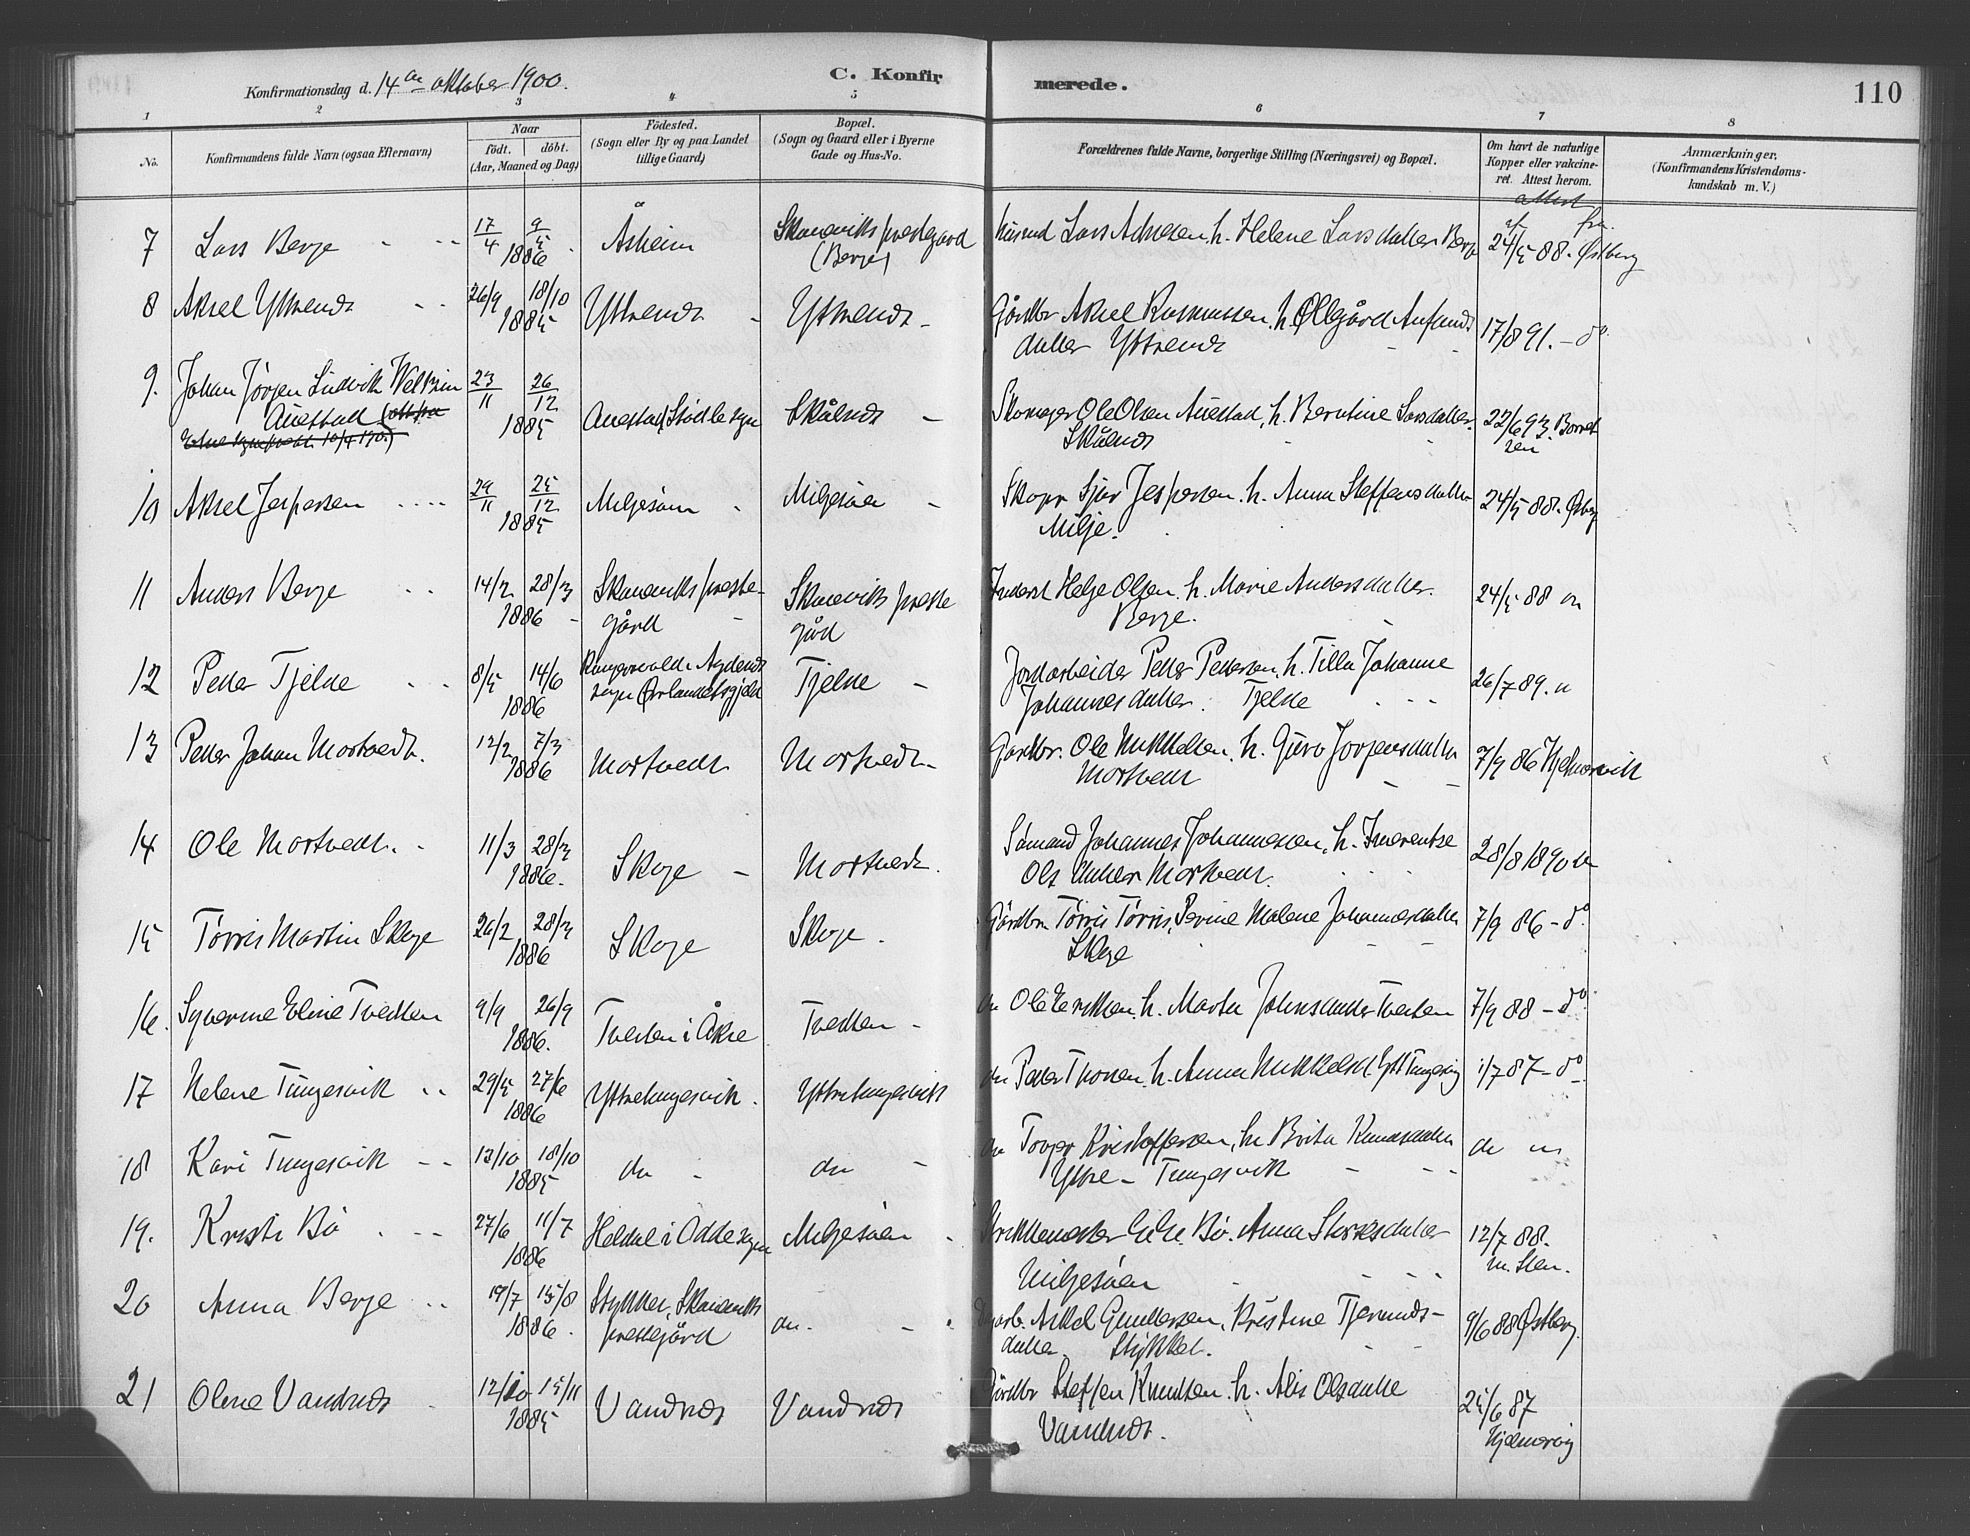 Konfirmationsdag d. 14de oktober 1900.
C. Konfirmerede.
110
1 2 3 4 5 6 7 8
No.
Konfirmandens fulde Navn (ogsaa Efternavn)
Naar
født. døbt.
(Aar, Maaned og Dag)
Fødested.
(Sogn eller By og paa Landet
tillige Gaard)
Bopæl.
(Sogn og Gaard eller i Byerne
Gade og Hus-No.
Forældrenes fulde Navne, borgerlige Stilling (Næringsvei) og Bopæl.
Om havt de naturlige
Kopper eller vakcine-
ret. Attest herom.
Anmærkninger,
(Konfirmandens Kristendoms-
kundskab m. V.)
attest
af fra
7 Lars Berge 17/4 9/5 1886 Åsheim Skoneviks prestegård (Berge) Lars h. Helene Larsdatter Berge 24/5 88. Østberg
8 Aksel Ytrenes 26/9 18/10 1885 Ytrenes Ytrenes Gårdbr Aksel Rasmussen h. Ollgård Amunds
datter Ytrenes 17/8 91. - do
9. Johan Jørgen Ludvik 23/11 26/12 1885 Auestad, Stødle sogn Skålnes Skomager Ole Olsen Auestad, h. Berntine Larsdatter
Auestad Skålnes 22/6 93.
10 Aksel Jespersen 29/11 25/12 1885 Miljesøen Miljesøen Sjur Jespersen h. Anna Steffensdatter
Milje. 24/5 88. Østberg
11 Anders Berge 14/2 28/3 1886 Skoneviks preste-
gård Skoneviks preste
gård Inderst Helge Olsen h. Marie Andersdatter
Berge. 24/5 88
12 Peder Tjelse 8/5 14/6 1886
sogn Tjelse Jordarbeider Peder Pedersen, h. Tilla Johanne
Johannesdatter. Tjelse 26/7 89.
13 Peder Johan Mostvedt. 12/2 7/3 1886 Mostvedt Mostvedt Gårdbr. Ole Mikkelsen h. Guro Jørgensdatter
Mostvedt 7/9 86 Hjelmervik
14 Ole Mostvedt. 11/3 28/3 1886. Skoge Mostvedt. Sømand Johannes Johannessen, h.
Olsdatter Mostvedt. 28/8 1890
15 Tørris Martin Skoge 26/2 28/3 1886 Skoge Skoge. Gårdbr. Tørris Tørris, Serine Malene Johannesdatter
Skoge 7/9 86 - do
16. Syverine Eline Tvedten 9/9 26/9 1886. Tvedten i Åkre Tvedten do Ole Eriksen h. Marta Johnsdatter Tvedten 7/9 88 - do
17 Helene Tungesvik 29/5 27/6 1886 Ytretungesvik. Ytretungesvik do Peder h. Anna Mikkelsd. Ytr Tungesvig 1/7 87 - do
18 Kari Tungesvik 13/10 18/10 1885 do do do Torger Kristoffersen, h. Brita Knudsdatter
Ytre - Tungesvik do
19. Kristi Bø 27/6 11/7 1886 Heldal i Odde sogn Miljesøen Bø. Anna
Miljesøen 12/7 88.
20 Anna Berge 19/7 15/8 1886. Stykket, Skoneviks
prestegård do. Askel Gundersen, Kristine
datter. Stykket. 9/6 88 Østberg.
21 Olene Vandnes 12/10 15/11 1885 Vandnes Vandnes Gårdbr Steffen Knudsen h. Alis Olsdatter
Vandnes. 25/6 87
Hjelmervig